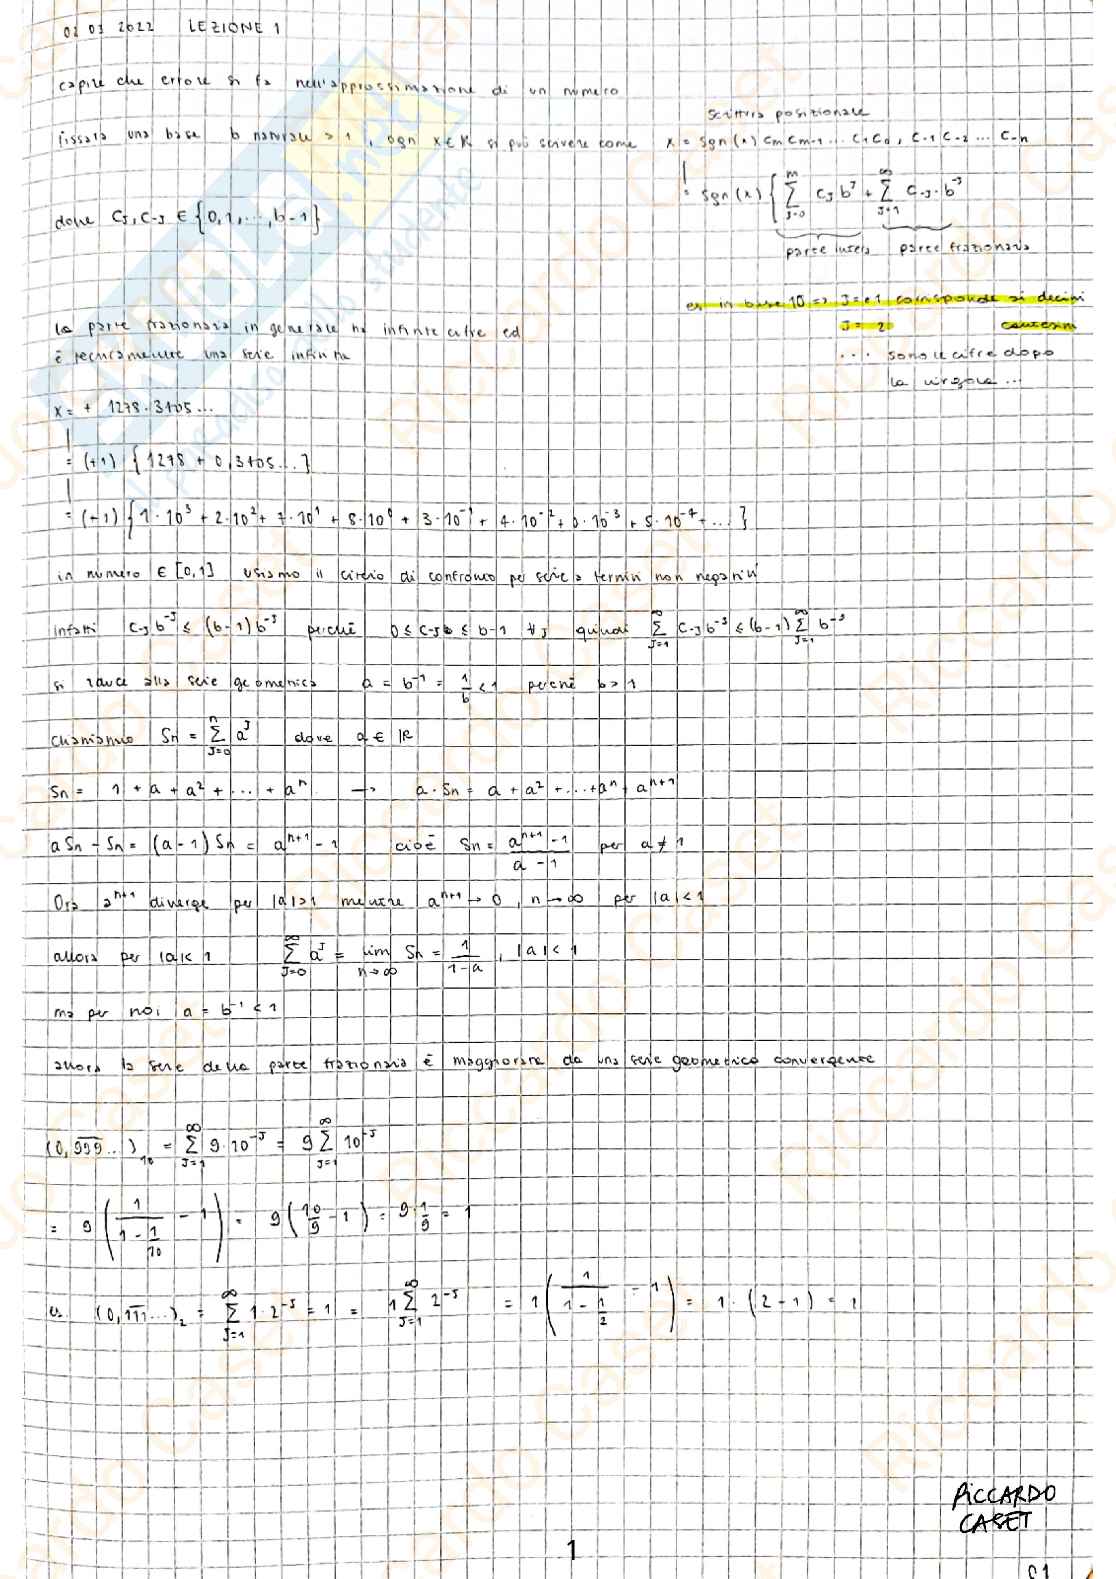 02 03 2022 LEZIONE 1
capire che errore si fa nell'approssimazione di un numero
scrittura posizionale
fissata una base b naturale > 1, ogn x ∈ R si può scrivere come x = sgn(x) cm cm-1 ... c1 c0, c-1 c-2 ... c-n
= sgn(x) { ∑_{J=0}^{m} cJ b^J + ∑_{J=1}^{∞} c-J · b^-J
dove cJ, c-J ∈ {0, 1, ..., b-1}
parte intera parte frazionaria
es in base 10 => J = 1 corrisponde ai decimi
J = 2 centesimi
... sono le cifre dopo
la virgola ...
la parte frazionaria in generale ha infinite cifre ed
è tecnicamente una serie infinita
x = + 1278.3405...
= (+1) {1278 + 0,3405...}
= (+1) {1·10^3 + 2·10^2 + 7·10^1 + 8·10^0 + 3·10^-1 + 4·10^-2 + 0·10^-3 + 5·10^-4 + ...}
in numero ∈ [0,1] usiamo il citerio di confronto per serie a termini non negativi
infatti c-J b^-J ≤ (b-1) b^-J perché 0 ≤ c-J b ≤ b-1 ∀J quindi ∑_{J=1}^{∞} c-J b^-J ≤ (b-1) ∑_{J=1}^{∞} b^-J
si alla serie geometrica a = b^-1 = 1/b < 1 perché b > 1
chiamiamo Sn = ∑_{J=0}^{n} a^J dove a ∈ R
Sn = 1 + a + a^2 + ... + a^n → a·Sn = a + a^2 + ... + a^n + a^{n+1}
aSn - Sn = (a-1) Sn = a^{n+1} - 1 cioè Sn = (a^{n+1} - 1)/(a - 1) per a ≠ 1
Ora a^{n+1} diverge per |a| > 1 mentre a^{n+1} → 0, n → ∞ per |a| < 1
allora per |a| < 1 ∑_{J=0}^{∞} a^J = lim_{n→∞} Sn = 1/(1-a), |a| < 1
ma per noi a = b^-1 < 1
allora la serie della parte frazionaria è maggiorata da una serie geometrica convergente
(0,999...)_10 = ∑_{J=1}^{∞} 9·10^-J = 9 ∑_{J=1}^{∞} 10^-J
= 9 (1/(1 - 1/10) - 1) = 9 (10/9 - 1) = 9·1/9 = 1
es. (0,111...)_2 = ∑_{J=1}^{∞} 1·2^-J = 1 = 1 ∑_{J=1}^{∞} 2^-J = 1 (1/(1 - 1/2) - 1) = 1·(2-1) = 1
RICCARDO
CASET
1